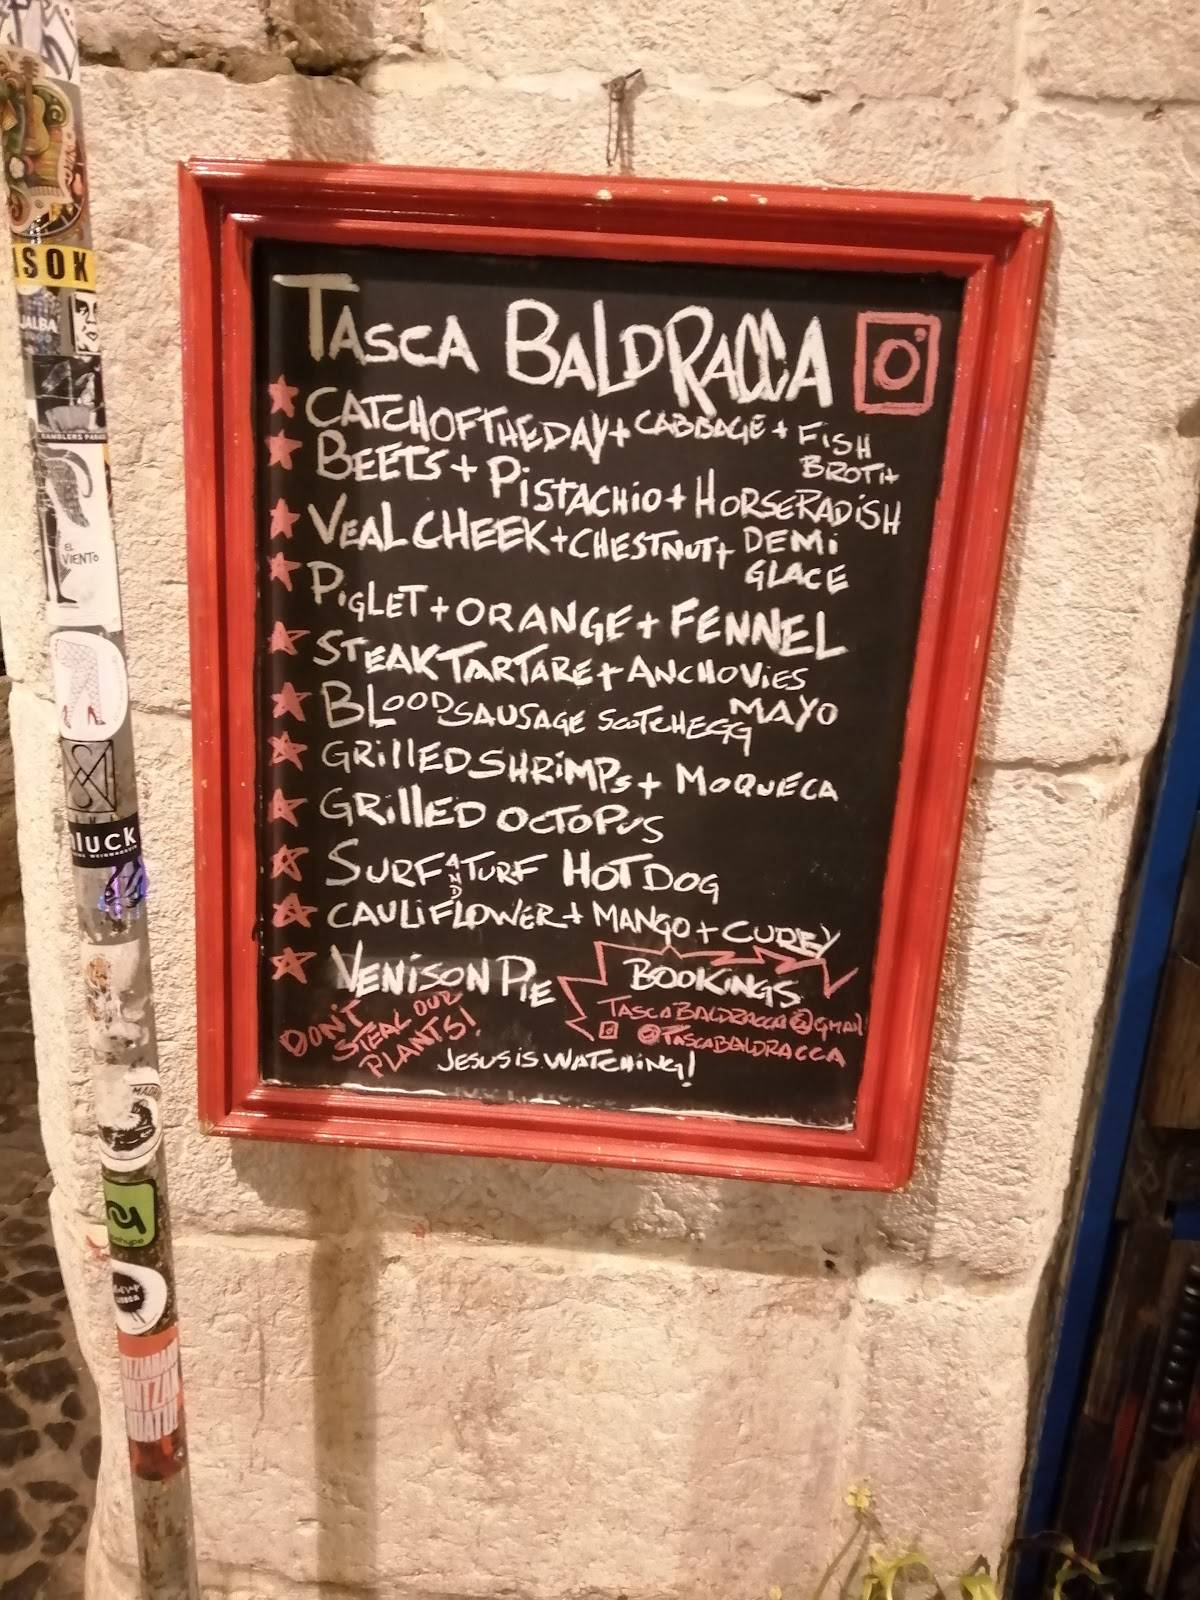 TASCA BALDRACCA
CATCH OF THE DAY + CABBAGE + FISH
BROTH
BEETS + PISTACHIO + HORSERADISH
VEAL CHEEK + CHESTNUT + DEMI
GLACE
PIGLET + ORANGE + FENNEL
STEAK TARTARE + ANCHOVIES
MAYO
BLOOD SAUSAGE SCOTCHEGG
GRILLED SHRIMPS + MOQUECA
GRILLED OCTOPUS
SURF AND TURF HOT DOG
CAULIFLOWER + MANGO + CURRY
VENISON PIE
BOOKINGS
TASCABALDRACCA@GMAIL
@TASCABALDRACCA
DON'T
STEAL OUR
PLANTS!
JESUS IS WATCHING!
ISOK
JALBA
RAMBLERS
EL
VIENTO
LUCK
MAD